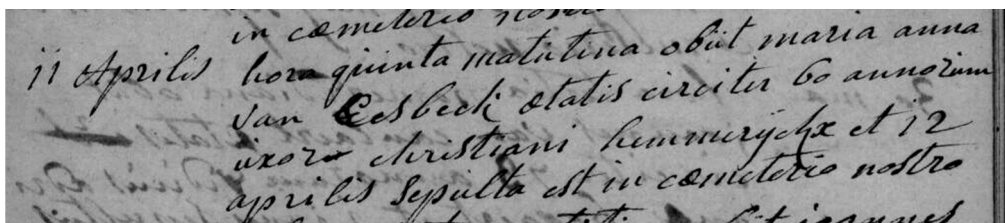 in cæmeterio nostro
11 Aprilis hora quinta matutina obiit maria anna
van Eesbeck ætatis circiter 60 annorum
uxor christiani hemmerijckx et 12
aprilis sepulta est in cæmeterio nostro
ioannes